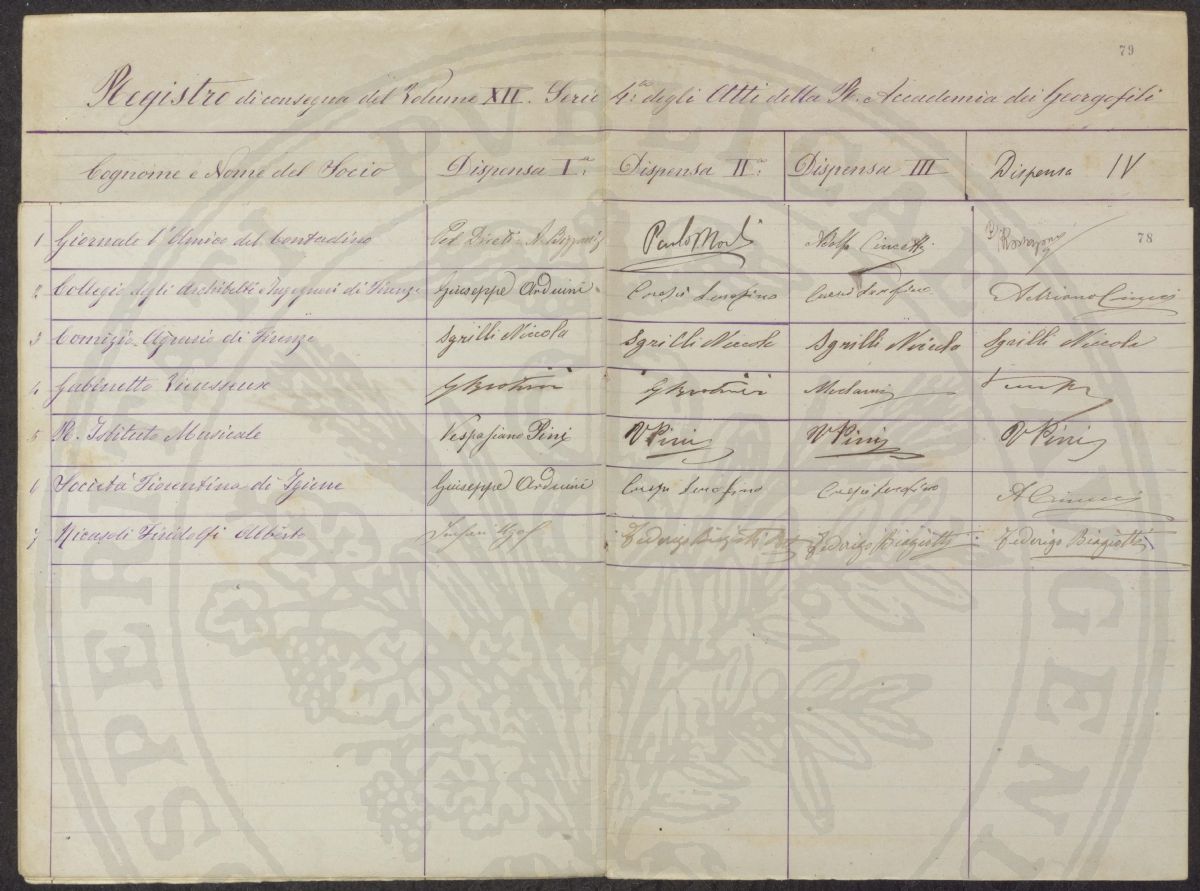 79
Registro di consegna del Volume XII. Serie 4.a degli Atti della R. Accademia dei Georgofili
Cognome e Nome del Socio Dispensa I.a Dispensa II.a Dispensa III Dispensa IV
78
1 Giornale l'Amico del Contadino Pel Dirett. A. Paolo Adolfo
2 Collegio degli Architetti Ingegneri di Firenze Giuseppe Arduini Crespi Serafino Crespi Serafino Adriano
3 Comizio Agrario di Firenze Sgrilli Niccola Sgrilli Niccola Sgrilli Niccola Sgrilli Niccola
4 Gabinetto Vieusseux
5 R. Istituto Musicale Vespasiano Pini V Pini V Pini V Pini
6 Società Fiorentina di Igiene Giuseppe Arduini Crespi Serafino Crespi Serafino A
7 Ricasoli Firidolfi Alberto Federigo Biagiotti Federigo Biagiotti Federigo Biagiotti
PVBLICAE